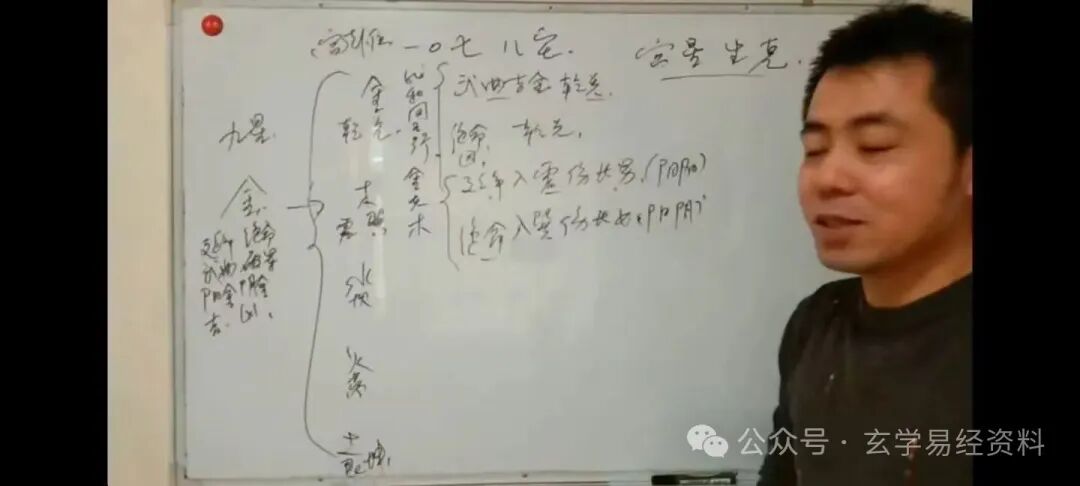 一〇七 八宅.
宫星生克.
九星
金.
延年 绝命
武曲 破军
阳金 阴金
吉. 凶.
金
乾兑.
比和同五行
武曲吉金 乾兑.
绝命
凶.
乾兑.
木
震巽
金克木
延年入震伤长男(阳阳)
绝命入巽伤长女(阴阴)
水
坎
火
离
土
艮坤.
公众号 · 玄学易经资料